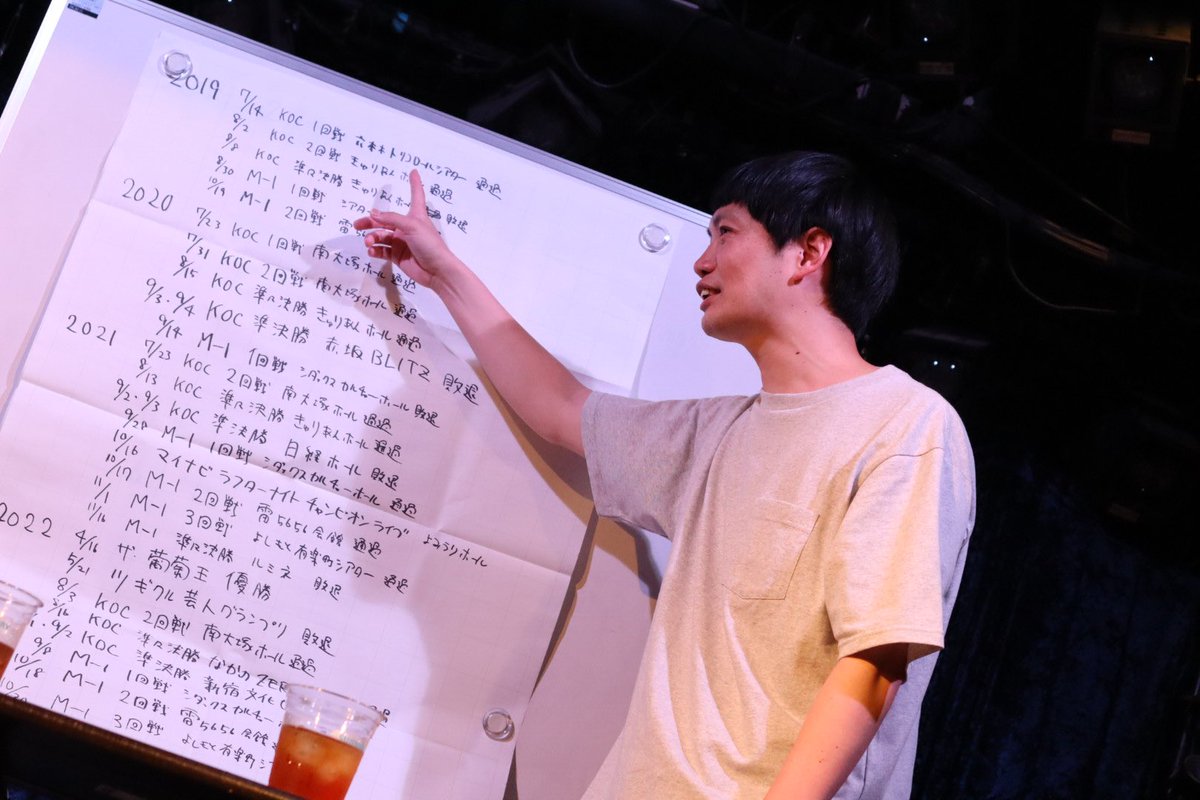 2019 7/14 KOC 1回戦 六本木トリコロールシアター 通過
8/2 KOC 2回戦 きゅりあんホール 通過
8/8 KOC 準々決勝 きゅりあんホール 敗退
8/30 M-1 1回戦 シアター
10/19 M-1 2回戦 雷56
2020 7/23 KOC 1回戦 南大塚ホール 通過
7/31 KOC 2回戦 南大塚ホール 通過
8/15 KOC 準々決勝 きゅりあんホール 通過
9/3.9/4 KOC 準決勝 赤坂BLITZ 敗退
9/14 M-1 1回戦 シダックスカルチャーホール 敗退
2021 7/23 KOC 2回戦 南大塚ホール 通過
8/13 KOC 準々決勝 きゅりあんホール 通過
9/2.9/3 KOC 準決勝 日経ホール 敗退
9/28 M-1 1回戦 シダックスカルチャーホール 通過
10/16 マイナビラフターナイトチャンピオンライブ よみうりホール
10/17 M-1 2回戦 雷5656会館 通過
11/1 M-1 3回戦 よしもと有楽町シアター 通過
11/16 M-1 準々決勝 ルミネ 敗退
2022 4/16 ザ・葡萄王 優勝
5/21 ツギクル芸人グランプリ 敗退
8/3 KOC 2回戦 南大塚ホール 通過
/16 KOC 準々決勝 なかのZER
.9/2 KOC 準決勝 新宿文化
9/8 M-1 1回戦 シダックスカルチャー
10/18 M-1 2回戦 雷5656会館
10/ M-1 3回戦 よしもと有楽町シ